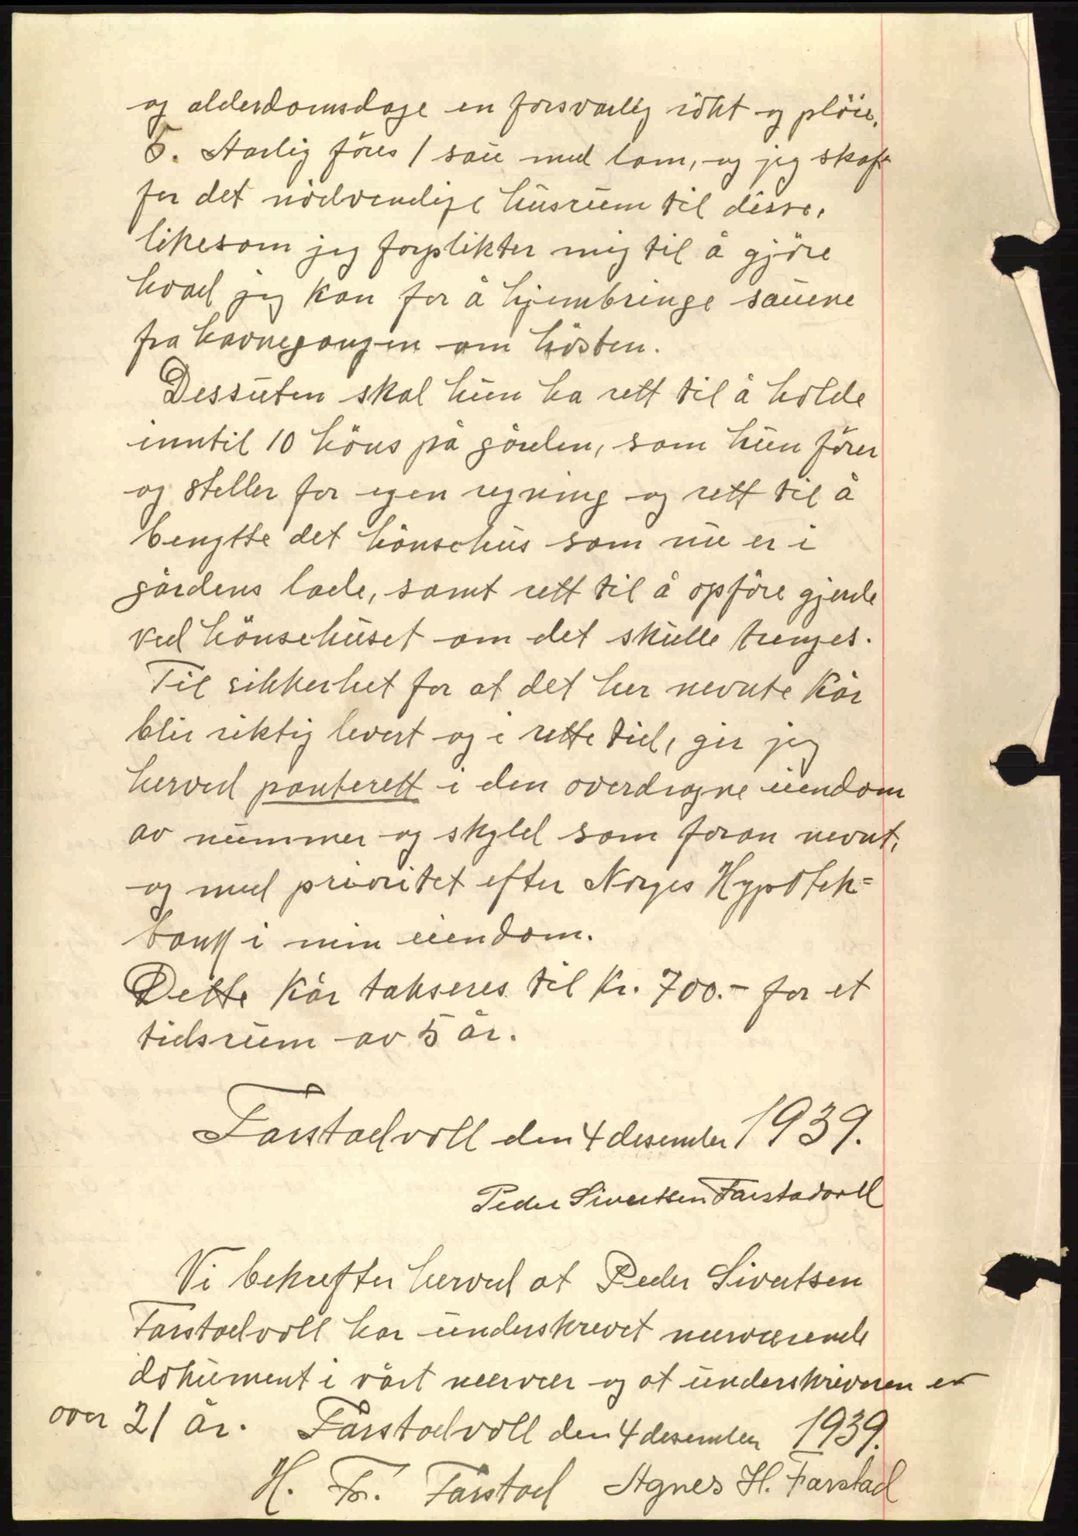 og alderdomsdage en forsvarlig røkt og pleie.
5. Aarlig föres 1 sau med lam, og jeg skaf-
fer det nödvendige husrum til disse,
likesom jeg forplikter mig til å gjöre
hvad jeg kan for å hjembringe sauene
fra havnegangen om hösten.
Dessuten skal hun ha rett til å holde
inntil 10 höns på gården, som hun förer
og steller for egen regning og rett til å
benytte det hönsehus som nu er i
gårdens lade, samt rett til å opföre gjerde
ved hönsehuset om det skulle trenges.
Til sikkerhet for at det her nevnte kår
blir riktig levert og i rette tid, gir jeg
herved panterett i den overdragne eiendom
av nummer og skyld som foran nevnt,
og med prioritet efter Norges Hypotek=
bank i min eiendom.
Dette kår takseres til kr. 700.- for et
tidsrum av 5 år.
Farstadvoll den 4 desember 1939.
Peder Sivertsen Farstadvoll
Vi bekrefter herved at Peder Sivertsen
Farstadvoll har underskrevet nærværende
dokument i vårt nærvær og at underskriveren er
over 21 år. Farstadvoll den 4 desember 1939.
H. Fr. Farstad Agnes H. Farstad